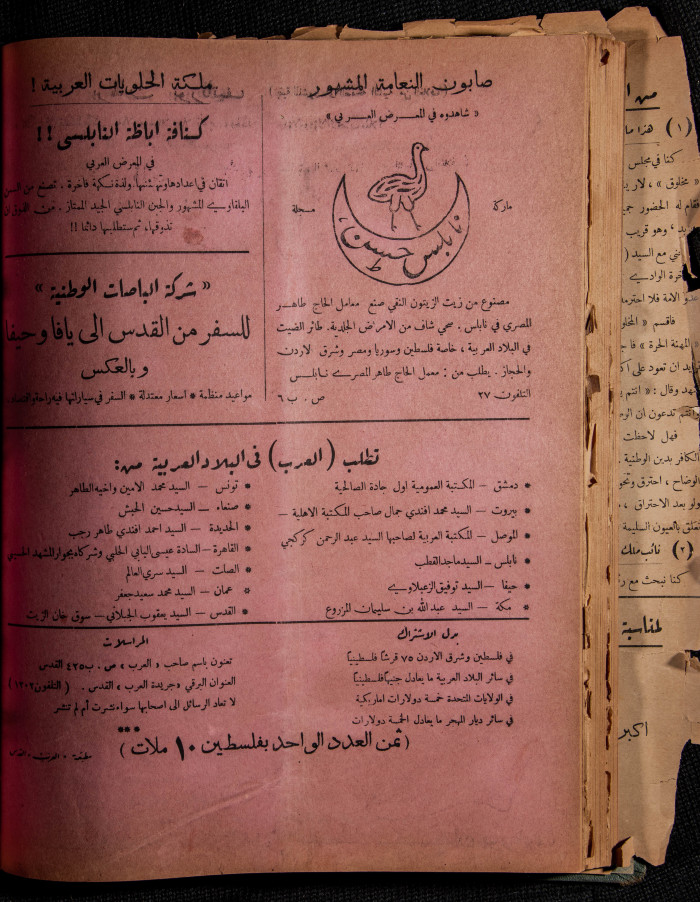 صابون النعامة المشهور
« شاهدوه في المعرض العربي »
ماركة
مسجلة
نابلس حسن ط
مصنوع من زيت الزيتون النقي صنع معامل الحاج طاهر
المصري في نابلس . صحي شاف من الامراض الجلدية. طائر الصيت
في البلاد العربية ، خاصة فلسطين وسوريا ومصر وشرق الاردن
والحجاز . يطلب من : معمل الحاج طاهر المصري نابلس
التلفون ٢٧ ص . ب ٦
ملكة الحلويات العربية !
كنافة اباظة النابلسي !!
في المعرض العربي
اتقان في اعدادها وتهيئتها. ولذة نكهة فاخرة . تصنع من السمن
البلقاوي المشهور والجبن النابلسي الجيد الممتاز .
تذوقها، ثم ستطلبها دائما !!
« شركة الباصات الوطنية »
للسفر من القدس الى يافا وحيفا
وبالعكس
مواعيد منظمة * اسعار معتدلة * السفر في سياراتها فيه راحة
تطلب (العرب) في البلاد العربية من:
* دمشق — المكتبة العمومية اول جادة الصالحية
* بيروت — السيد محمد افندي جمال صاحب المكتبة الاهلية —
* الموصل — المكتبة العربية لصاحبها السيد عبد الرحمن كركجي
* نابلس — السيد ماجد القطب
* حيفا — السيد توفيق الزعبلاوي
* مكة — السيد عبد الله بن سليمان المزروع
* تونس — السيد محمد الامين واخيه الطاهر
* صنعاء — السيد حسين الحبش
* الحديدة — السيد احمد افندي طاهر رجب
* القاهرة — السادة عيسى البابي الحلبي وشركاه بجوار المشهد الحسيني
* الصلت — السيد سري العالم
* عمان — السيد محمد سعيد جعفر
* القدس — السيد يعقوب الجيلاني — سوق خان الزيت
بدل الاشتراك
في فلسطين وشرق الاردن ٧٥ قرشاً فلسطينياً
في سائر البلاد العربية ما يعادل جنيهاً فلسطينياً
في الولايات المتحدة خمسة دولارات اميركية
في سائر ديار المهجر ما يعادل الخمسة دولارات
المراسلات
تعنون باسم صاحب « العرب » ص . ب ٤٢٥ القدس
العنوان البرقي « جريدة العرب » القدس . ( التلفون ١٢٠٢ )
لا تعاد الرسائل الى اصحابها سواء نشرت أم لم تنشر
(ثمن العدد الواحد بفلسطين ١٠ ملات)
مطبعة « العرب » القدس
(١) هذا ما
كنا في مجلس
« مخلوق » ،
فقام له الحضور
، وهو قريب
مع السيد (
الامة فلا
فاقسم «
« المهنة الحرة »
ان تعود على
وقال : « انتم
تدعون ان
فهل لاحظت
الكافر بدين الوطنية
الوضاح ، احترق
ولو بعد الاحتراق ،
تعلق بالعيون السليمة
(٢) نائب ملك
كنا نبحث مع
لمناسبة
اكبر